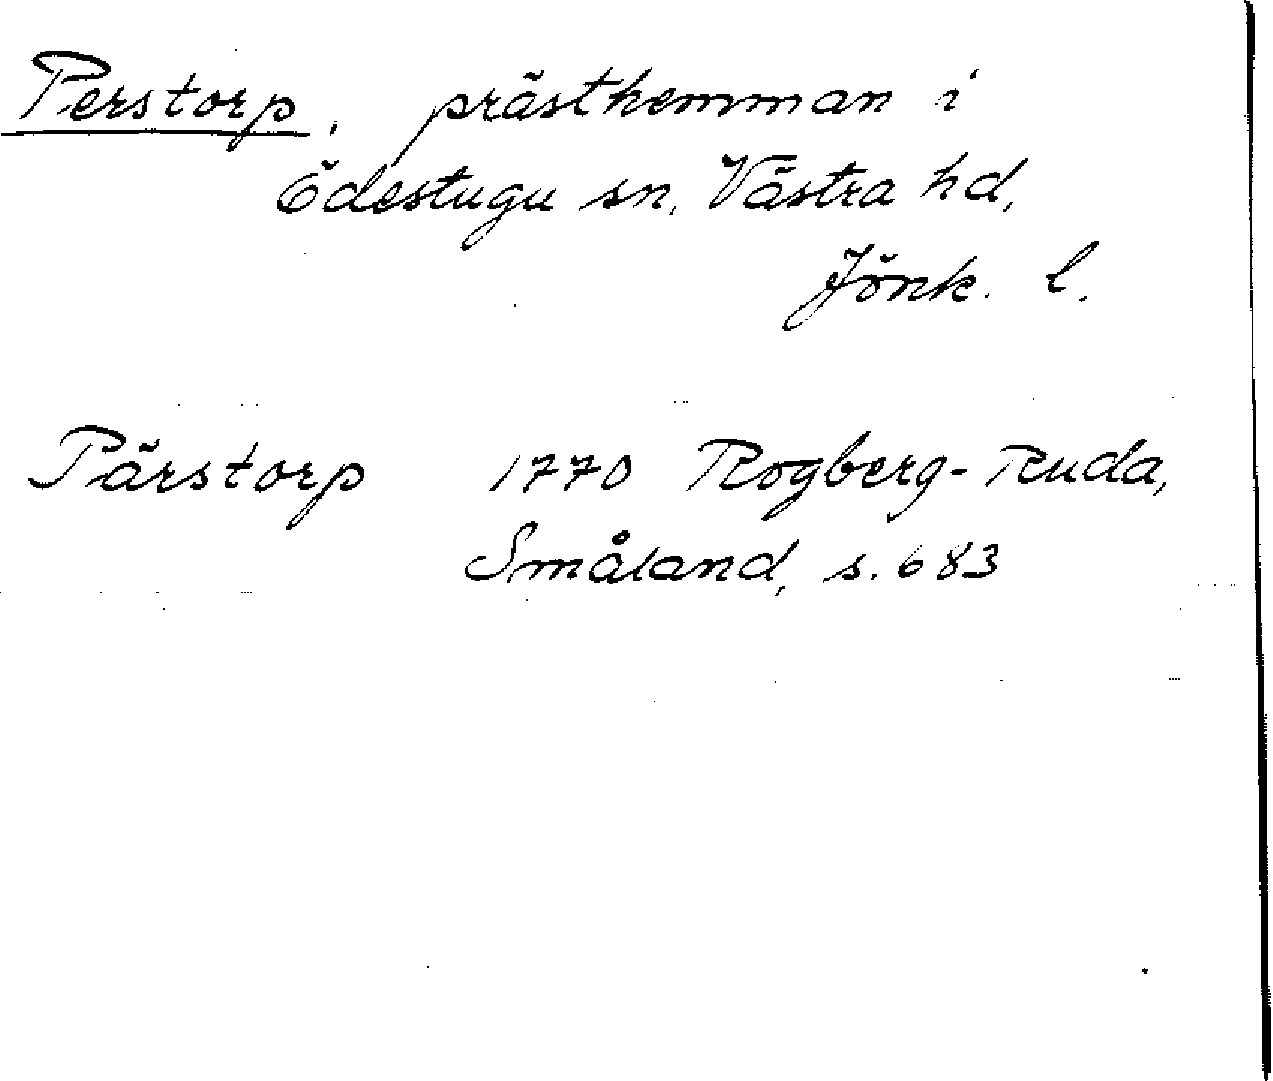 Perstorp, prästhemman i
Ödestugu sn, Västra hd,
Jönk. l.
Pärstorp 1770 Rogberg-Ruda,
Småland, s. 683